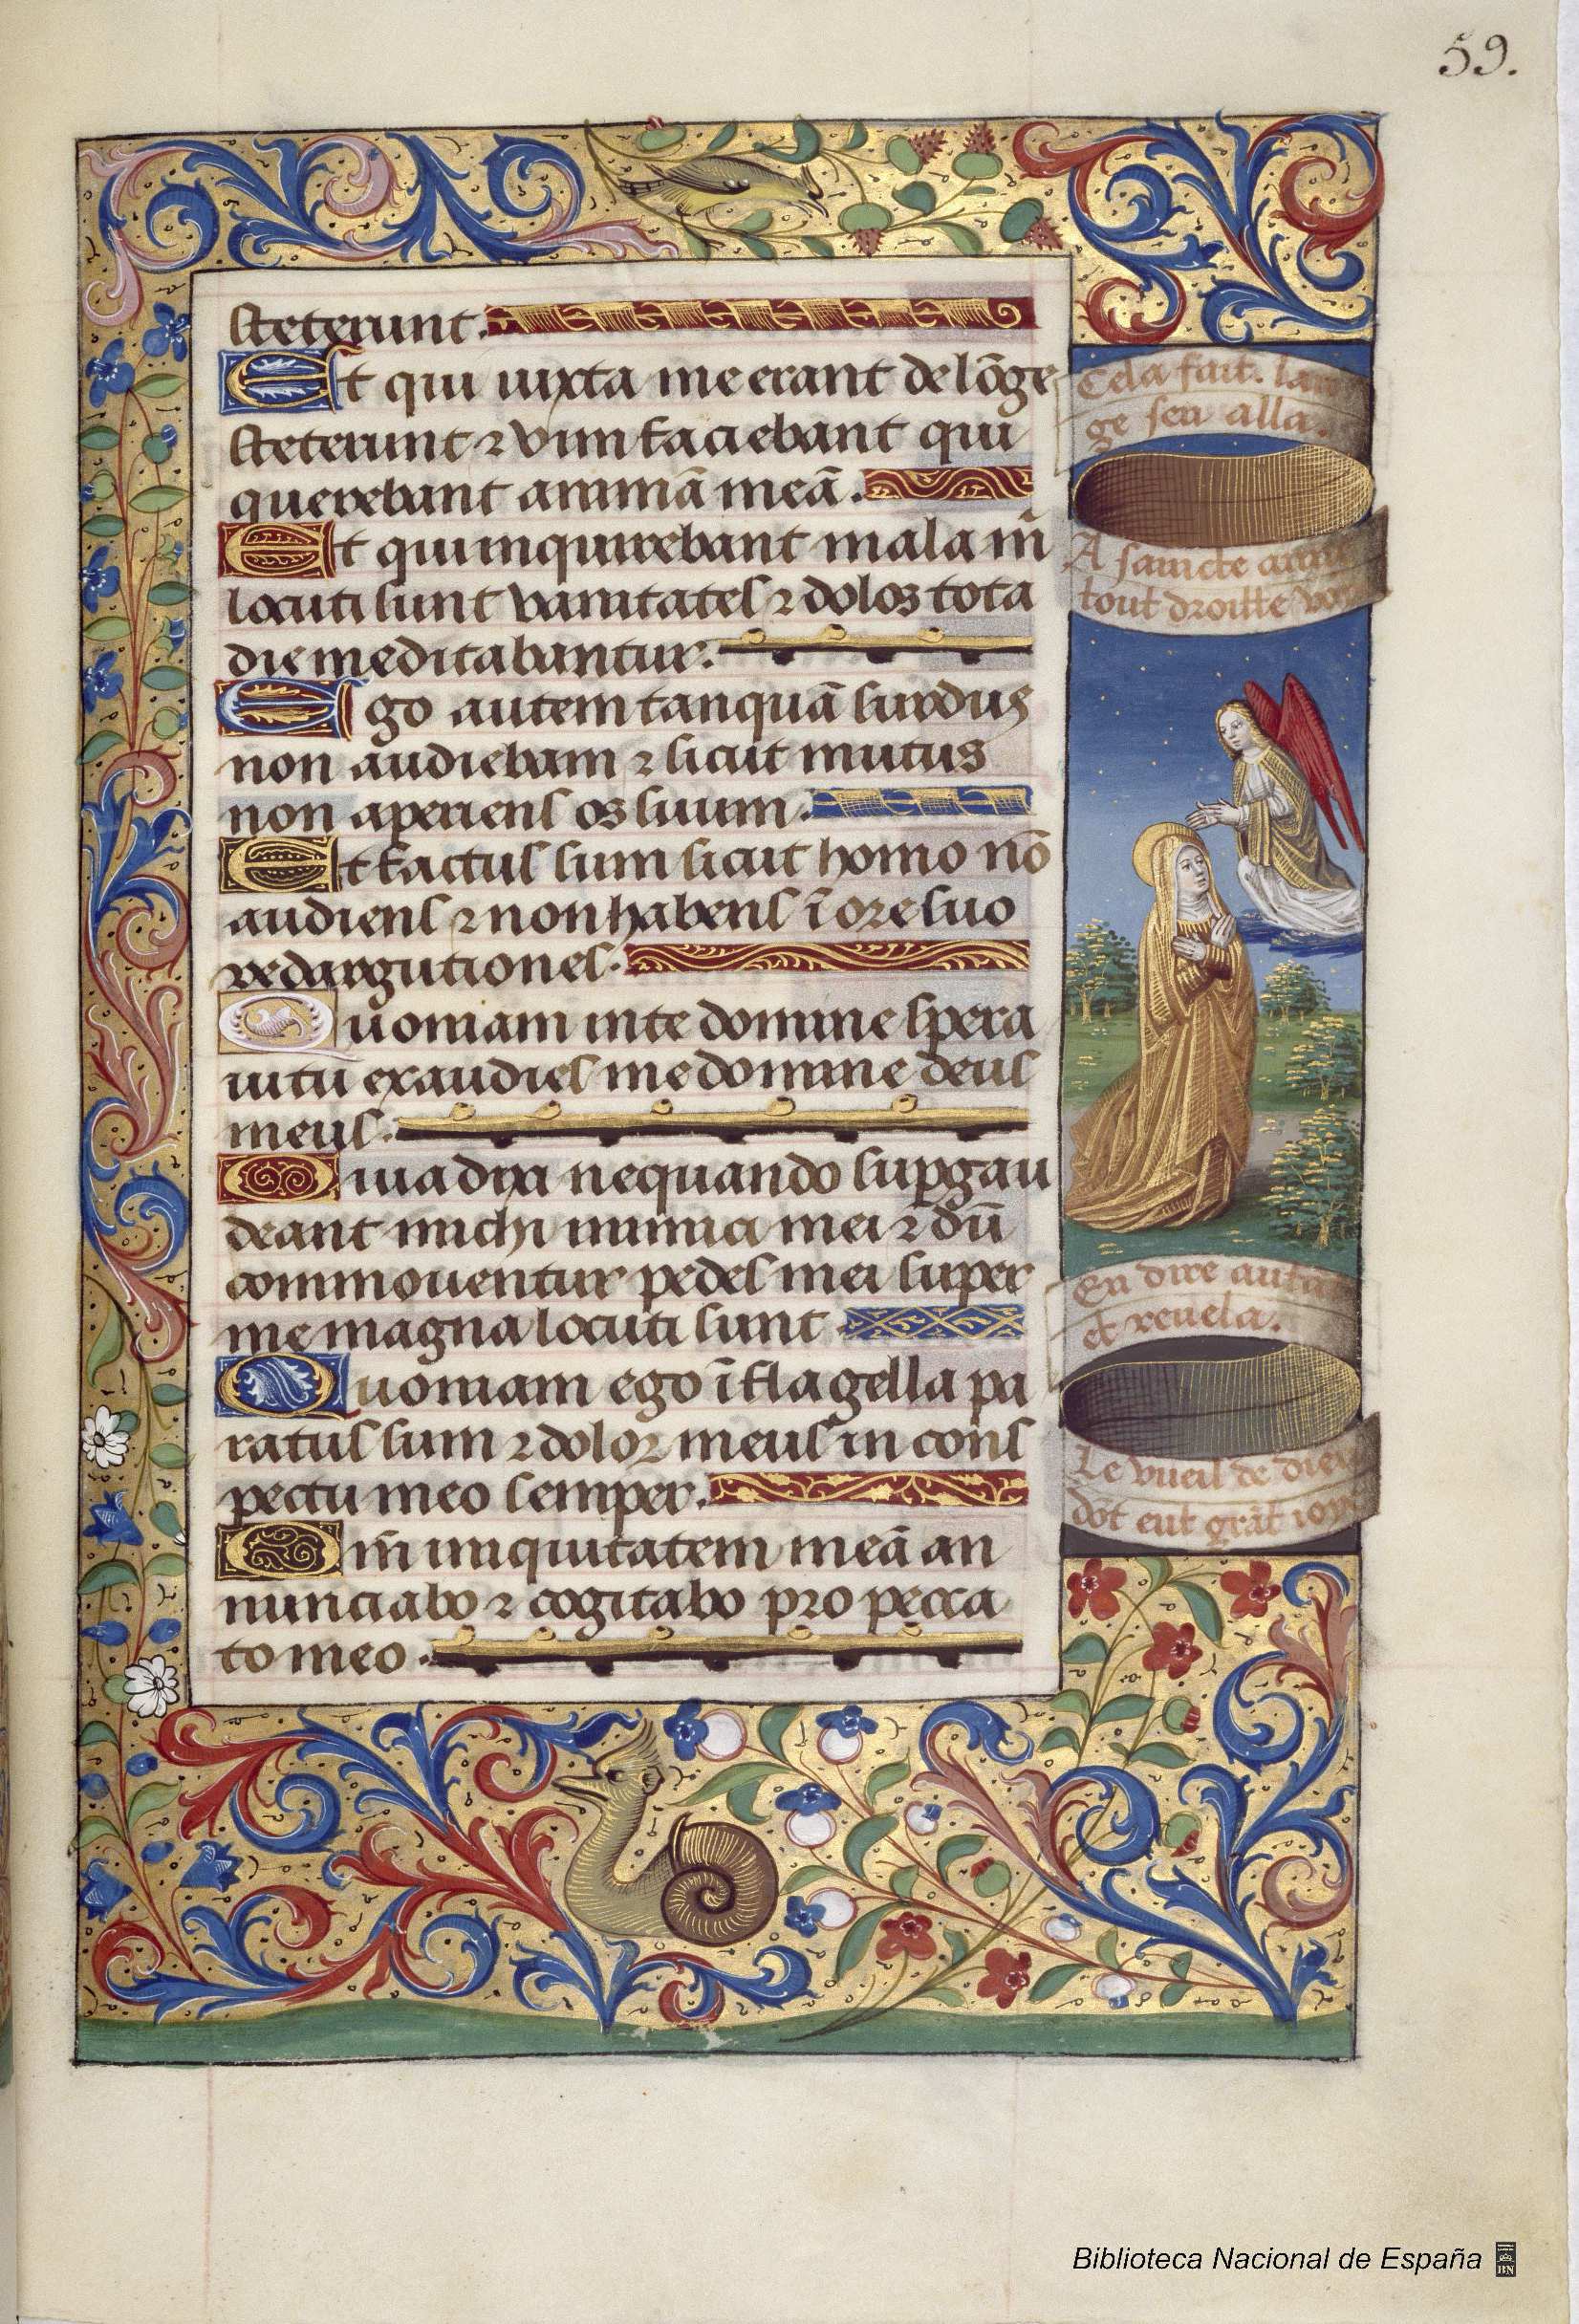 59.
steterunt.
Et qui iuxta me erant de lōge
steterunt ⁊ vim faciebant qui
querebant animā meā.
Et qui inquirebant mala m̄
locuti sunt vanitates ⁊ dolos tota
die meditabantur.
Ego autem tanquā surdus
non audiebam ⁊ sicut mutus
non aperiens os suum.
Et factus sum sicut homo nō
audiens ⁊ non habens ī ore suo
redargutiones.
Quoniam in te domine spera
ui tu exaudies me domine deus
meus.
Quia dixi nequando suꝑgau
deant michi inimici mei ⁊ dū
commouentur pedes mei super
me magna locuti sunt
Quoniam ego ī flagella pa
ratus sum ⁊ dolor meus in cons
pectu meo semper.
Qm̄ iniquitatem meā an
nunciabo ⁊ cogitabo pro pecca
to meo.
Cela fait. lan
ge sen alla.
A saincte anne
tout droitte
En dire
et reuela.
Le vueil de dieu
dōt eut grāt ioye
Biblioteca Nacional de España
BN